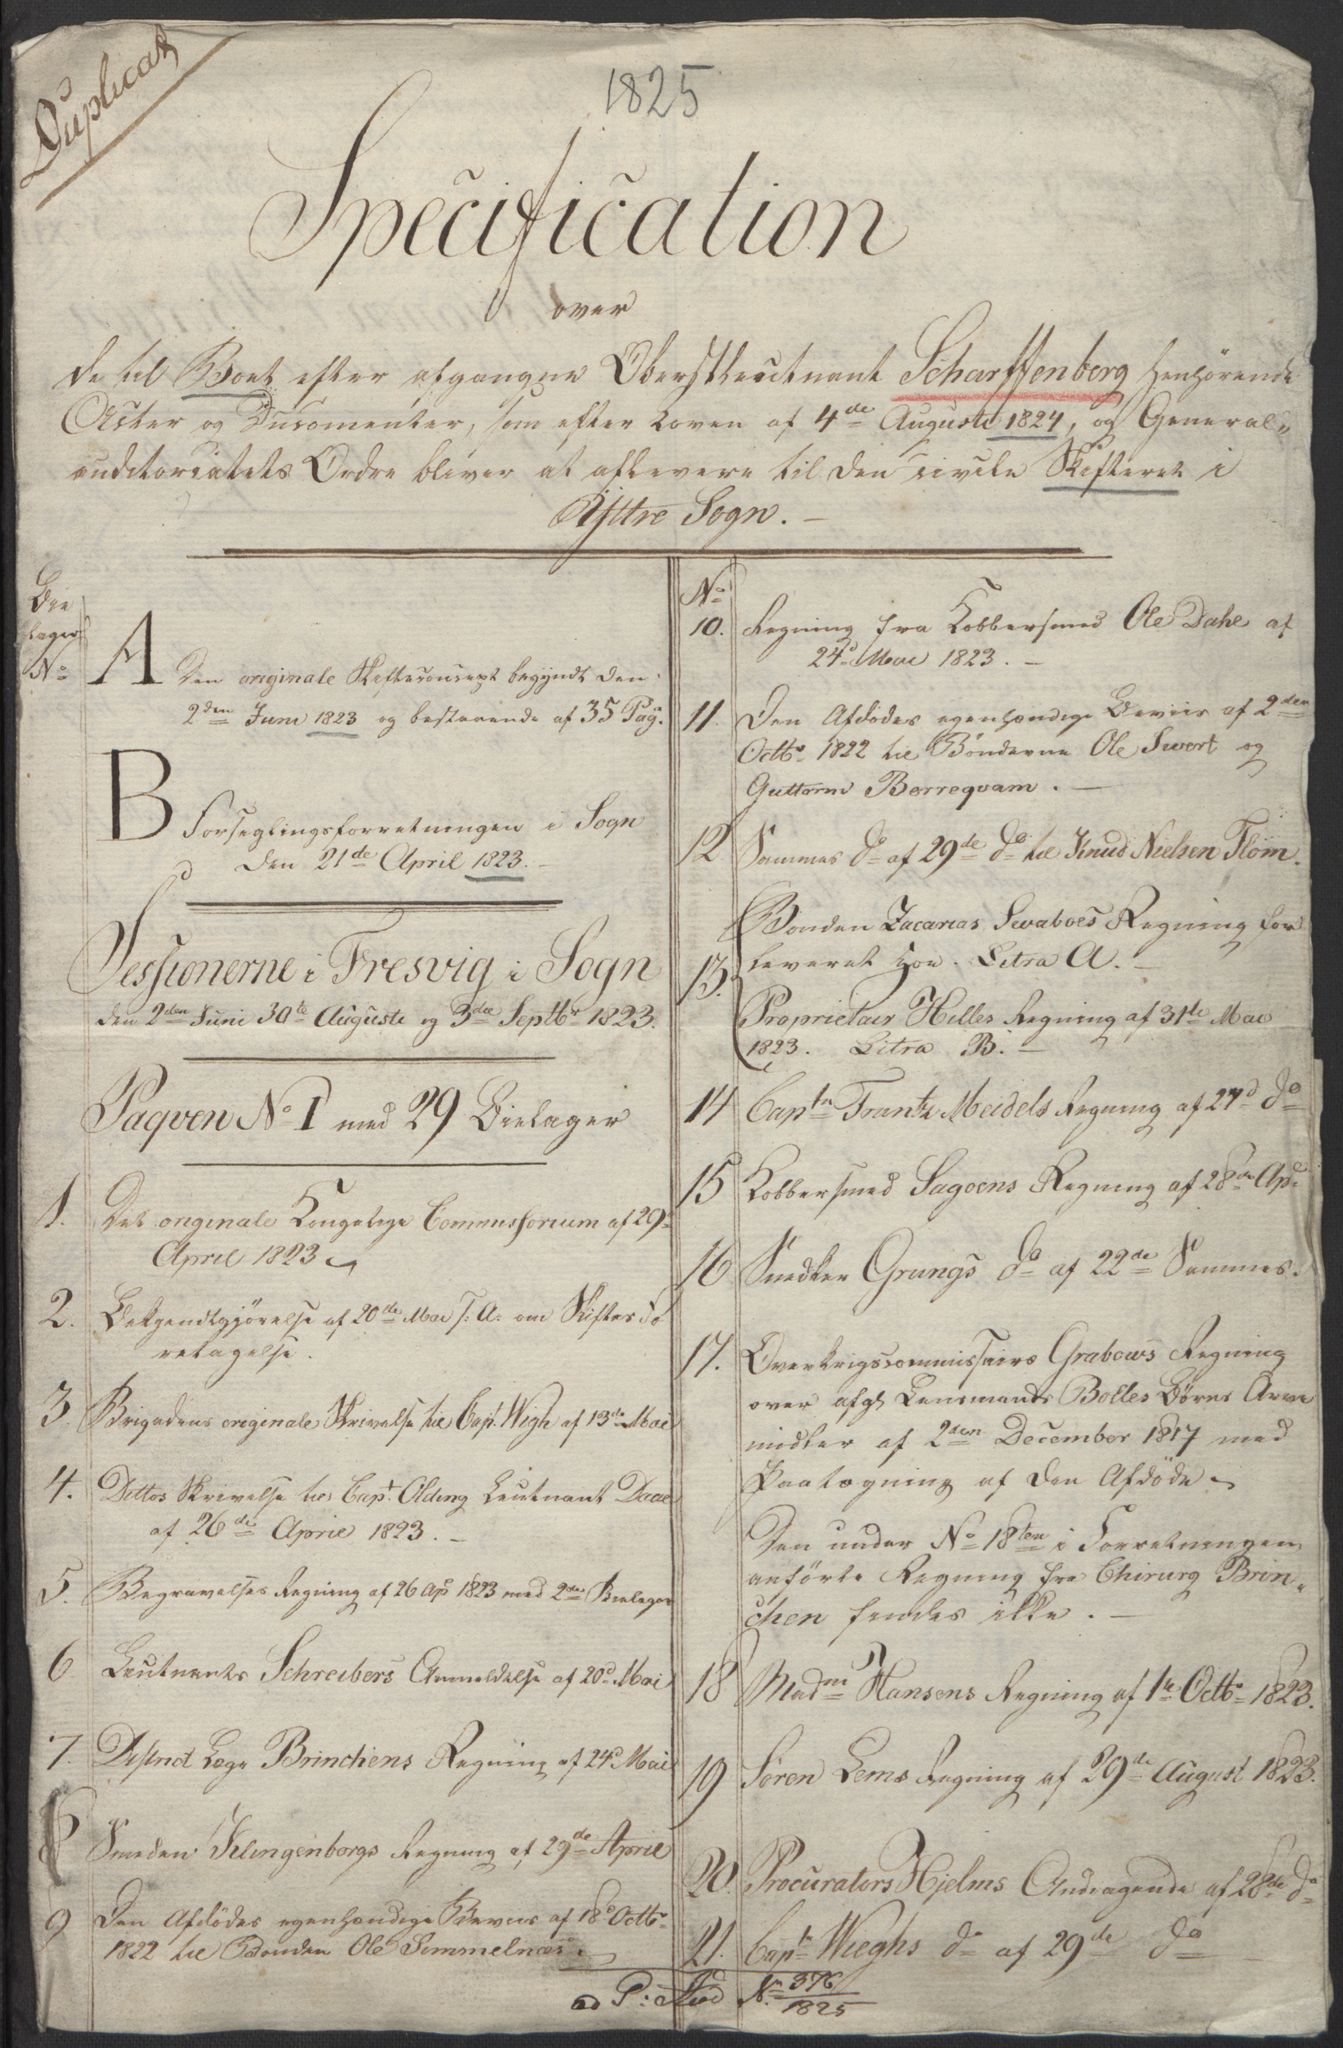 Duplicat
1825
Specification
over
de til Boet efter afgangne Oberstleutnant Scharffenberg henhørende
Acter og Documenter, som efter Loven af 4de Auguste 1824, og General-
auditoriatets Ordre bliver at aflevere til den civile Skifteret i
Yttre Sogn. —
Bie
lager
No
A Den originale Skifteconcept begyndt den
2den Juni 1823 og bestaaende af 35 Pag.
B Forseglingsforretningen i Sogn
den 21de April 1823.
Sessionerne i Fresvig i Sogn
den 2den Juni 30te Auguste og 3die Septbr 1823.
Paqven No 1 med 29 Bielager
1. Det originale Kongelige Commissorium af 29
April 1823
2. Bekjendtgjørelse af 20de Mai s: A: om Skiftets fo
retagelse.
3 Brigadens originale Skrivelse til Capt. Wigh af 13de Mai
4. Dittos Skrivelse til Capt. Olding Leutnant Daae
af 26de April 1823. —
5. Begravelses Regning af 26 Apl 1823 med 2de Bielager
6 Leutnants Schreibers Anmeldelse af 20d Mai
7. District Læge Brinchens Regning af 24d Mai
8 Smeden Klingenbergs Regning af 29de April
9 Den Afdødes egenhændige Beviis af 18d Octbr
1822 til Bonden Ole Simmelnæs.
No
10. Regning fra Kobbersmed Ole Dahl af
24d Mai 1823. —
11. Den Afdødes egenhændige Beviis af 2den
Octbr 1822 til Bønderne Ole Swort og
Guttorm Berreqvam. —
12 Sammes do af 29de do til Knud Nielsen Flom.
13. Bonden Zacarias Swaboes Regning for
leveret Høe. Litra A. —
Proprietair Hilles Regning af 31te Mai
1823. Litra B. —
14 Captn Frantz Meidels Regning af 27d do
15 Kobbersmed Sagoens Regning af 28de Apl
16 Snedker Grungs do af 22de Sammes.
17. Overkrigscommissairs Grabows Regning
over afgl Lensmands Bolles Børns Arve
midler af 2den December 1817 med
Paategning af den Afdøde
Den under No 18den i Forretningen
anførte Regning fra Chirurg Brin-
chen findes ikke. —
18 Madm Hansens Regning af 1te Octbr 1823.
19 Søren Lems Regning af 29de August 1823.
20. Procurators Hjelms Andragende af 28de do
21. Captn Wieghs do af 29de do
ad P: Med No 376/1825